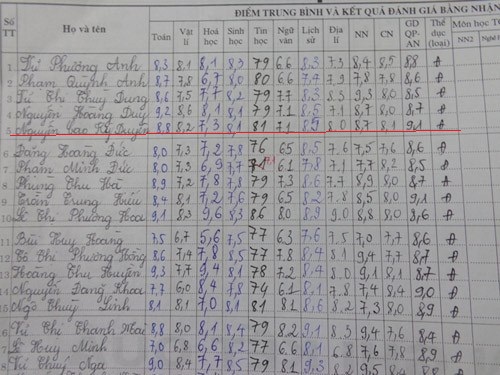 ĐIỂM TRUNG BÌNH VÀ KẾT QUẢ ĐÁNH GIÁ BẰNG NHẬN
Số TT Họ và tên Toán Vật lí Hoá học Sinh học Tin học Ngữ văn Lịch sử Địa lí NN CN GD QP-AN Thể dục (loại) Môn học NN2 Nghề
1 Phương Anh 8,3 8,1 8,1 8,3 79 66 8,3 7,3 8,4 8,5 8,8 Đ
2 Phạm Quỳnh Anh 8,7 7,8 6,7 8,0 80 66 7,4 7,9 7,8 7,8 8,6 Đ
3 Thị Thuỳ Dung 8,6 7,5 7,7 8,2 79 77 8,3 8,5 9,3 8,0 8,5 Đ
4 Nguyễn Hoàng Duy 9,2 8,6 8,1 8,1 79 7,1 8,5 7,1 8,7 8,0 8,7 Đ
5 Nguyễn Cao Kỳ Duyên 8,8 8,2 7,3 8,1 81 7,1 8,9 8,0 8,7 8,1 9,1 Đ
6 Đặng Hoàng Đức 8,0 7,3 7,2 7,8 76 65 8,5 7,6 7,5 7,6 8,6 Đ
7 Phạm Minh Đức 8,0 7,3 6,9 7,7 61 7,8 7,1 7,7 8,2 8,5 Đ
8 Phùng Thu Hà 8,9 7,2 7,8 7,8 79 7,3 8,6 7,7 8,9 8,0 8,7 Đ
9 Trần Trung Hiếu 8,4 8,1 7,2 7,6 79 65 8,2 7,8 8,5 8,0 9,1 Đ
10 Lê Thị Phương Hoa 9,1 8,3 9,6 8,3 86 80 8,9 9,0 8,8 8,0 8,6 Đ
11 Bùi Huy Hoàng 7,5 6,7 5,6 7,5 77 63 7,6 7,5 7,0 7,7 8,6 Đ
12 Thị Phương Hồng 8,6 7,4 7,8 8,5 77 7,8 8,4 8,1 9,4 7,7 8,7 Đ
13 Hoàng Thu Huyền 9,3 7,7 9,4 8,1 78 7,2 8,4 8,0 9,1 8,1 8,7 Đ
14 Nguyễn Đăng Khoa 7,7 6,0 8,4 7,8 76 61 8,1 7,8 7,4 8,4 9,0 Đ
15 Ngô Thuỳ Linh 8,1 8,1 7,0 8,1 81 81 8,6 8,2 7,3 8,0 8,9 Đ
6 Thị Thanh Mai 8,8 8,0 8,1 8,4 79 8,2 9,1 8,3 9,4 7,6 8,4 Đ
7 Lê Huy Minh 7,0 6,8 6,6 8,2 77 66 8,1 6,8 7,6 7,8 8,9 Đ
8 Thuý Nga 9,0 8,4 7,7 8,5 79 8,1 9,3 8,2 9,5 8,8 Đ